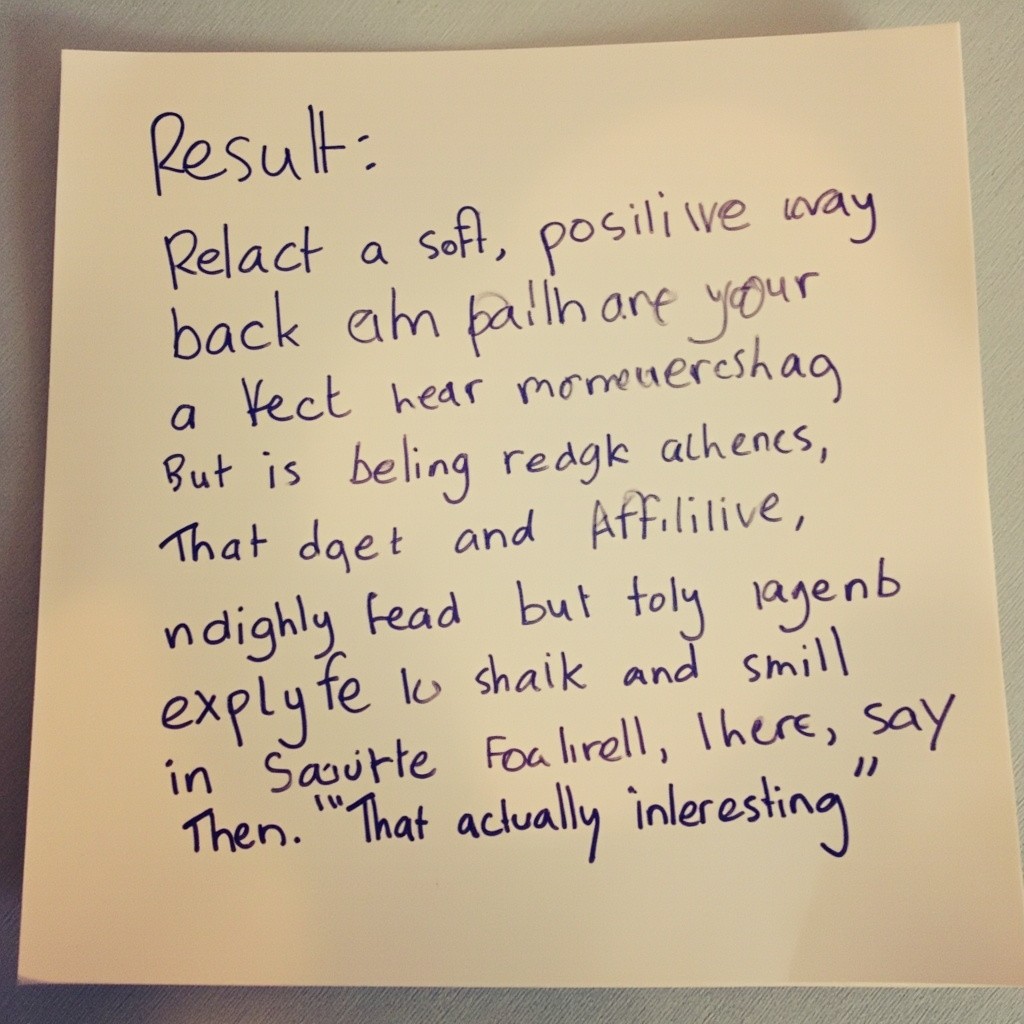 Result:
Relact a soft, posilive way
back eim pailhane your
a Vect hear momeuercshag
But is beling redgk alhencs,
That dqet and Affililive,
ndighly fead but toly iagenb
explyfe to shaik and smill
in Sasurte Foalirell, lhere, say
Then. "'"That actually inleresting"